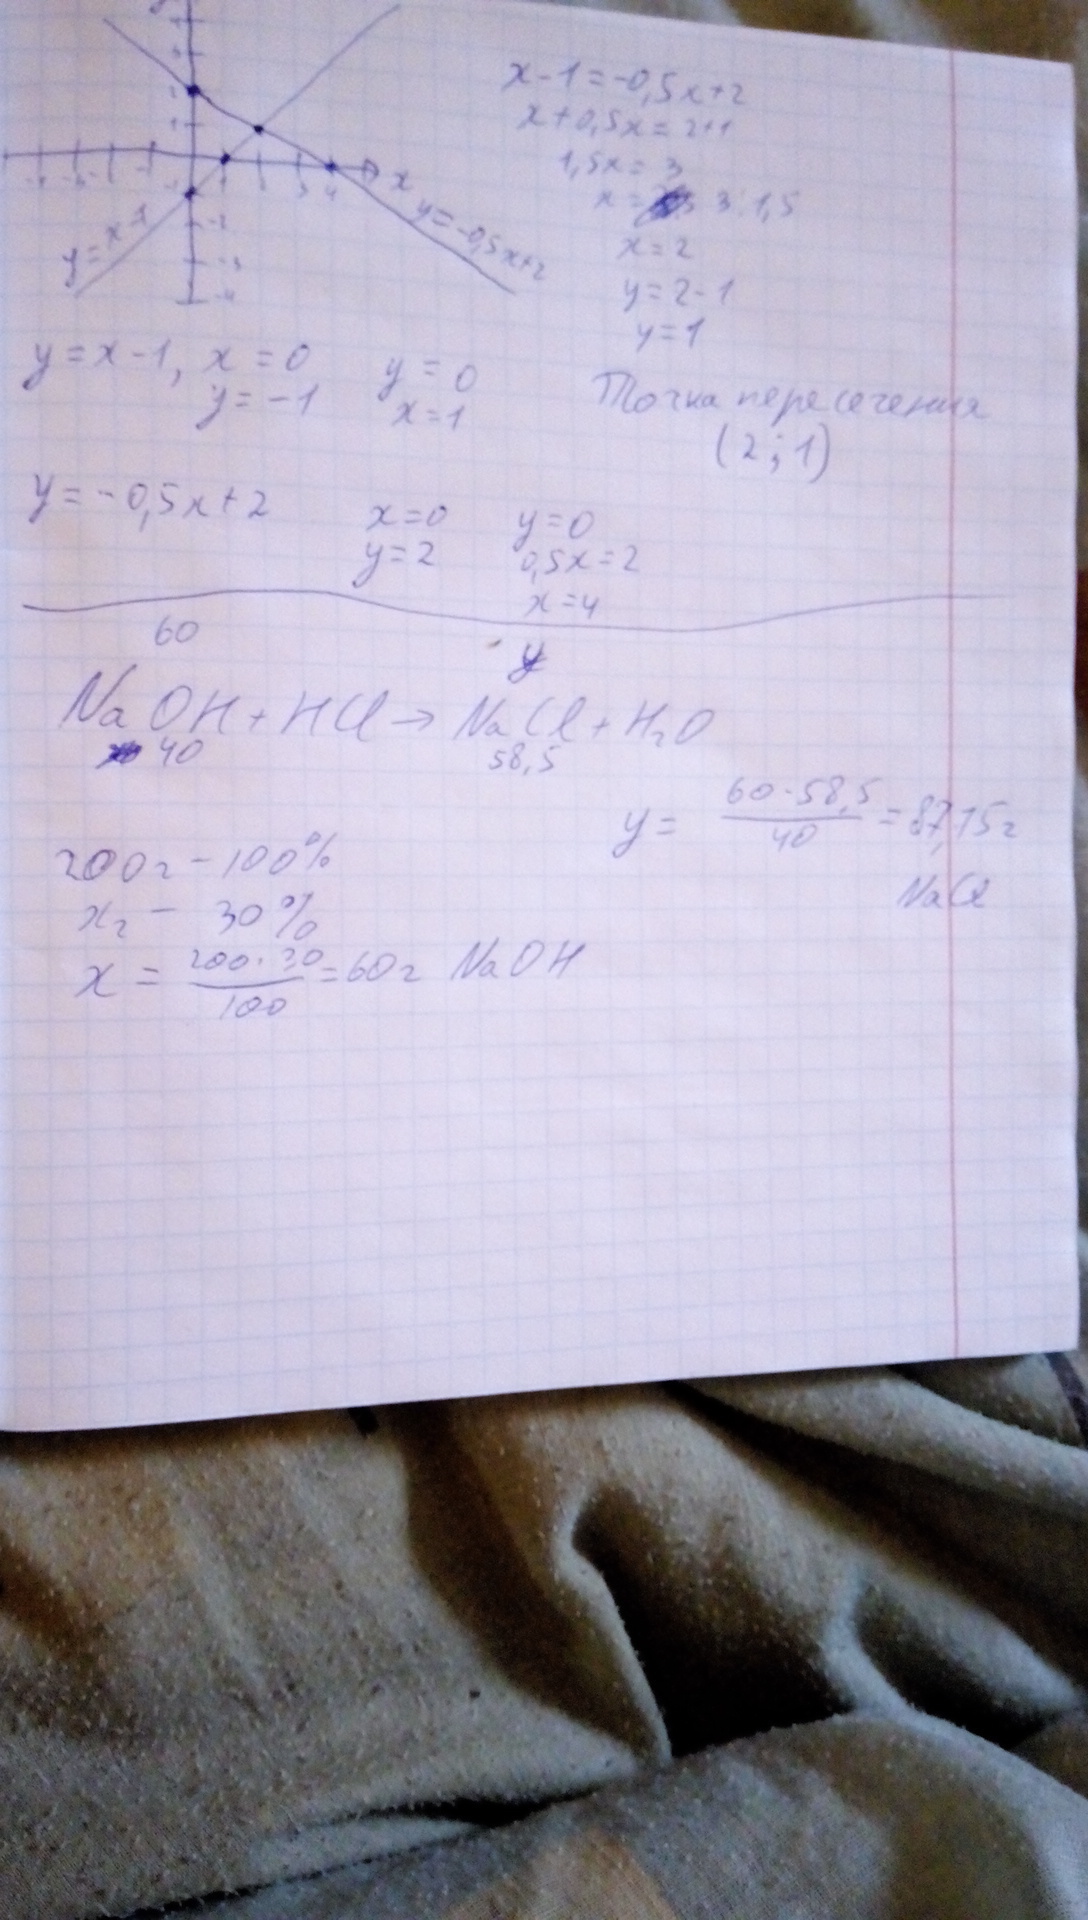 x-1=-0,5x+2
x+0,5x=2+1
1,5x=3
x= 3:1,5
x=2
y=2-1
y=1
Точка пересечения
(2;1)
x
y=x-1
y=-0,5x+2
y=x-1, x=0 y=0
y=-1 x=1
y=-0,5x+2 x=0 y=0
y=2 0,5x=2
x=4
60 y
NaOH+HCl→NaCl+H₂O
40 58,5
y= 60·58,5/40 =87,75г
NaCl
200г-100%
xг - 30%
x = 200·30/100 =60г NaOH